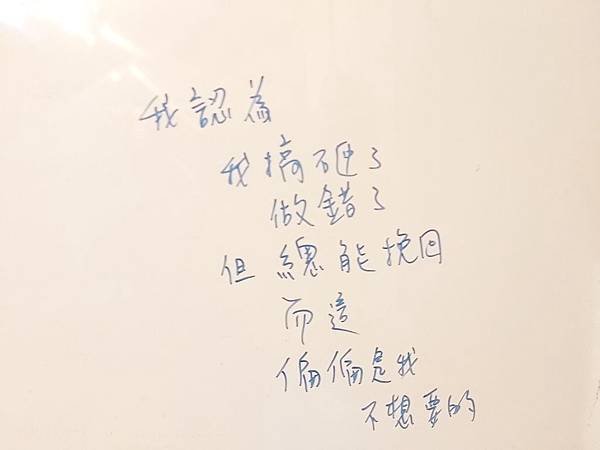 我認為
我搞砸了
做錯了
但總能挽回
而這
偏偏是我
不想要的